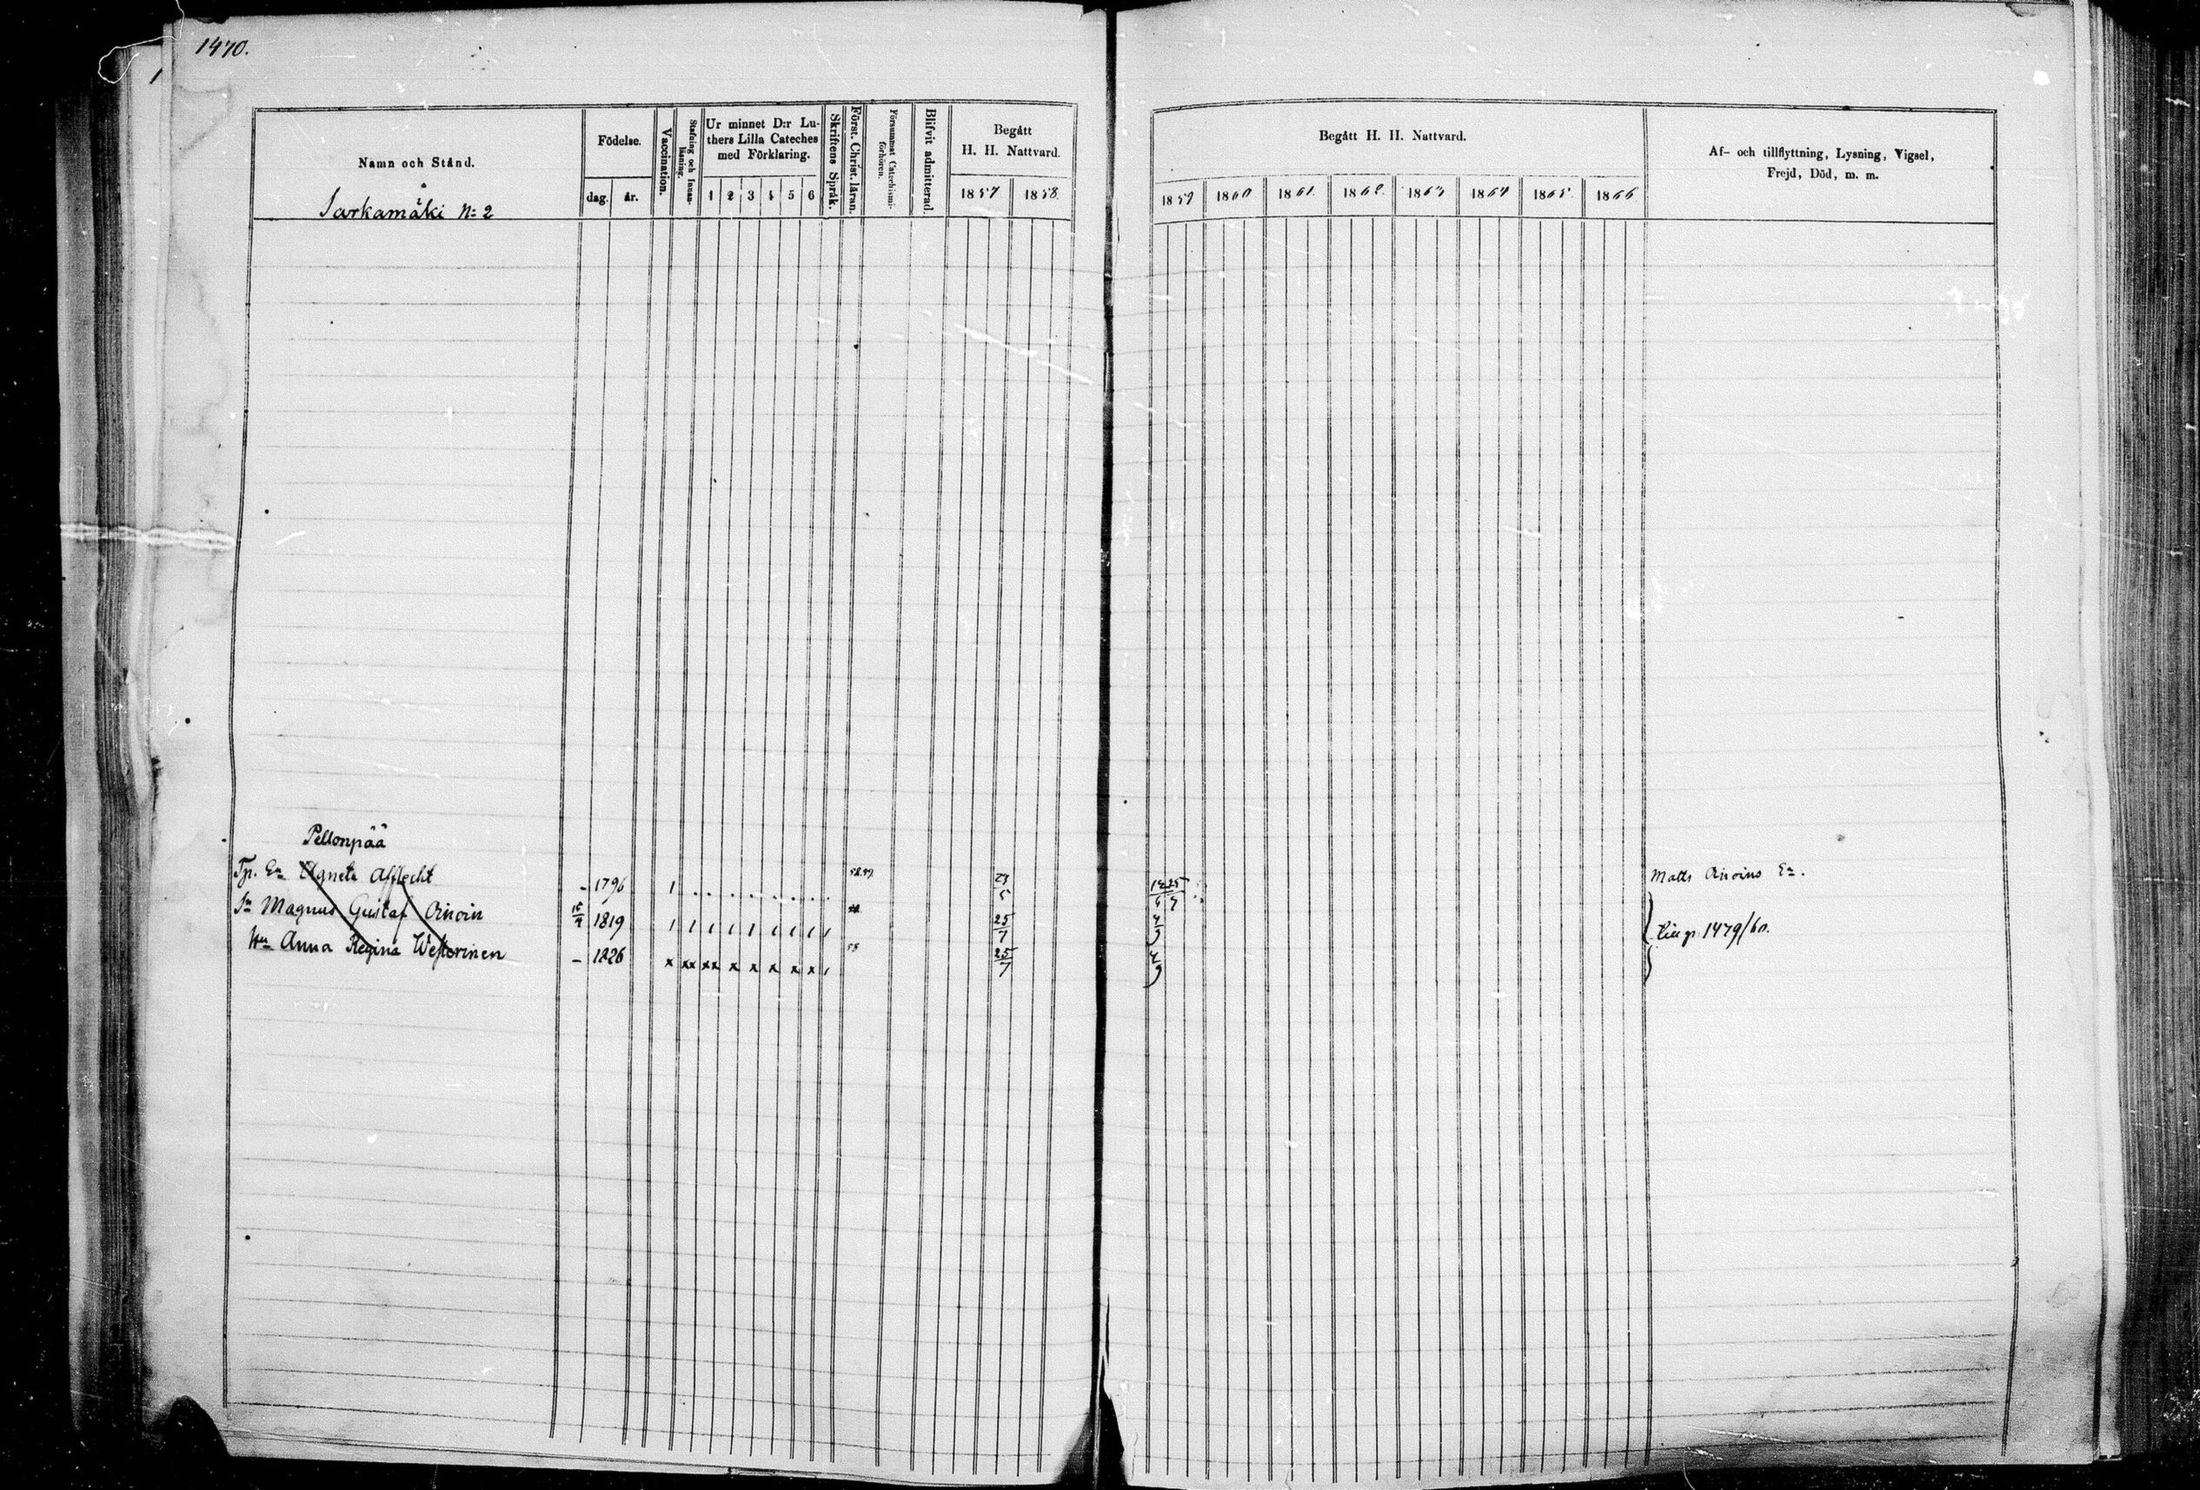 1470.
Namn och Stånd.
Sarkamäki No 2
Födelse.
dag. år.
Vaccination.
Stafning och Innan-läsning.
Ur minnet D:r Lu-
thers Lilla Cateches
med Förklaring.
1 2 3 4 5 6
Skriftens Språk.
Först. Christ. läran.
Försummat Catechismi-förhören.
Blifvit admitterad.
Begått
H. H. Nattvard.
1857 1858.
Begått H. H. Nattvard.
1859 1860 1861. 1862. 1863 1864 1865. 1866
Af- och tillflyttning, Lysning, Vigsel,
Frejd, Död, m. m.
Pellonpää
Tp. Ea Agneta Afflecht - 1796 1 58.59 24/5 25/7 Matts Ea.
Sn Magnus Gustaf 15/4 1819 1 1 1 1 1 1 1 1 1 25/7 4/9 p. 1479/60.
Hu Anna Regina Westerinen - 1826 x xx xx x x x x x 1 58 25/7 4/9